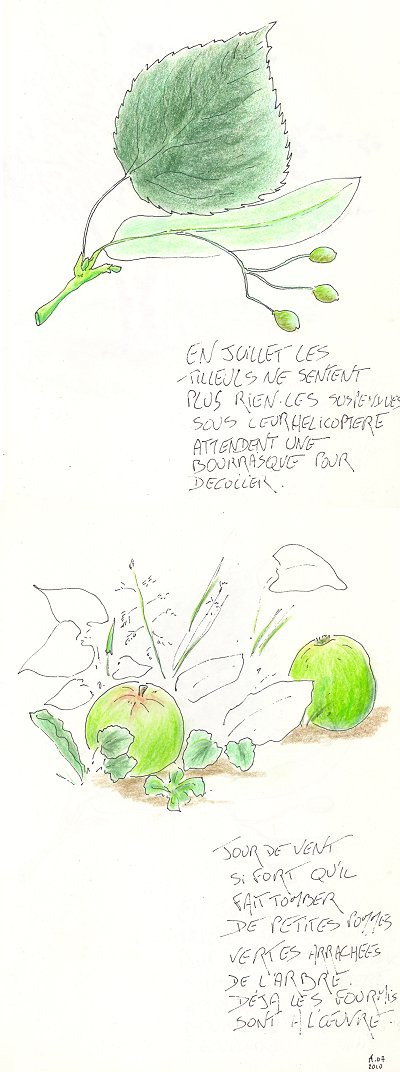 EN JUILLET LES
TILLEULS NE SENTENT
PLUS RIEN. LES SUSPENDUES
SOUS LEUR HELICOPTERE
ATTENDENT UNE
BOURRASQUE POUR
DECOLLER.
JOUR DE VENT
SI FORT QU'IL
FAIT TOMBER
DE PETITES POMMES
VERTES ARRACHEES
DE L'ARBRE.
DÉJA LES FOURMIS
SONT A L'ŒUVRE.
2010